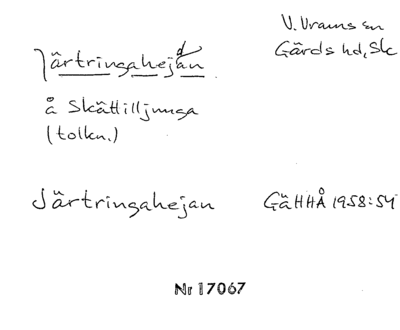 V. Vrams sn
Gärds hd, Sk
Järtringahejdan
å Skättilljunga
(tolkn.)
Järtringahejan GäHHÅ 1958:54
Nr 17067